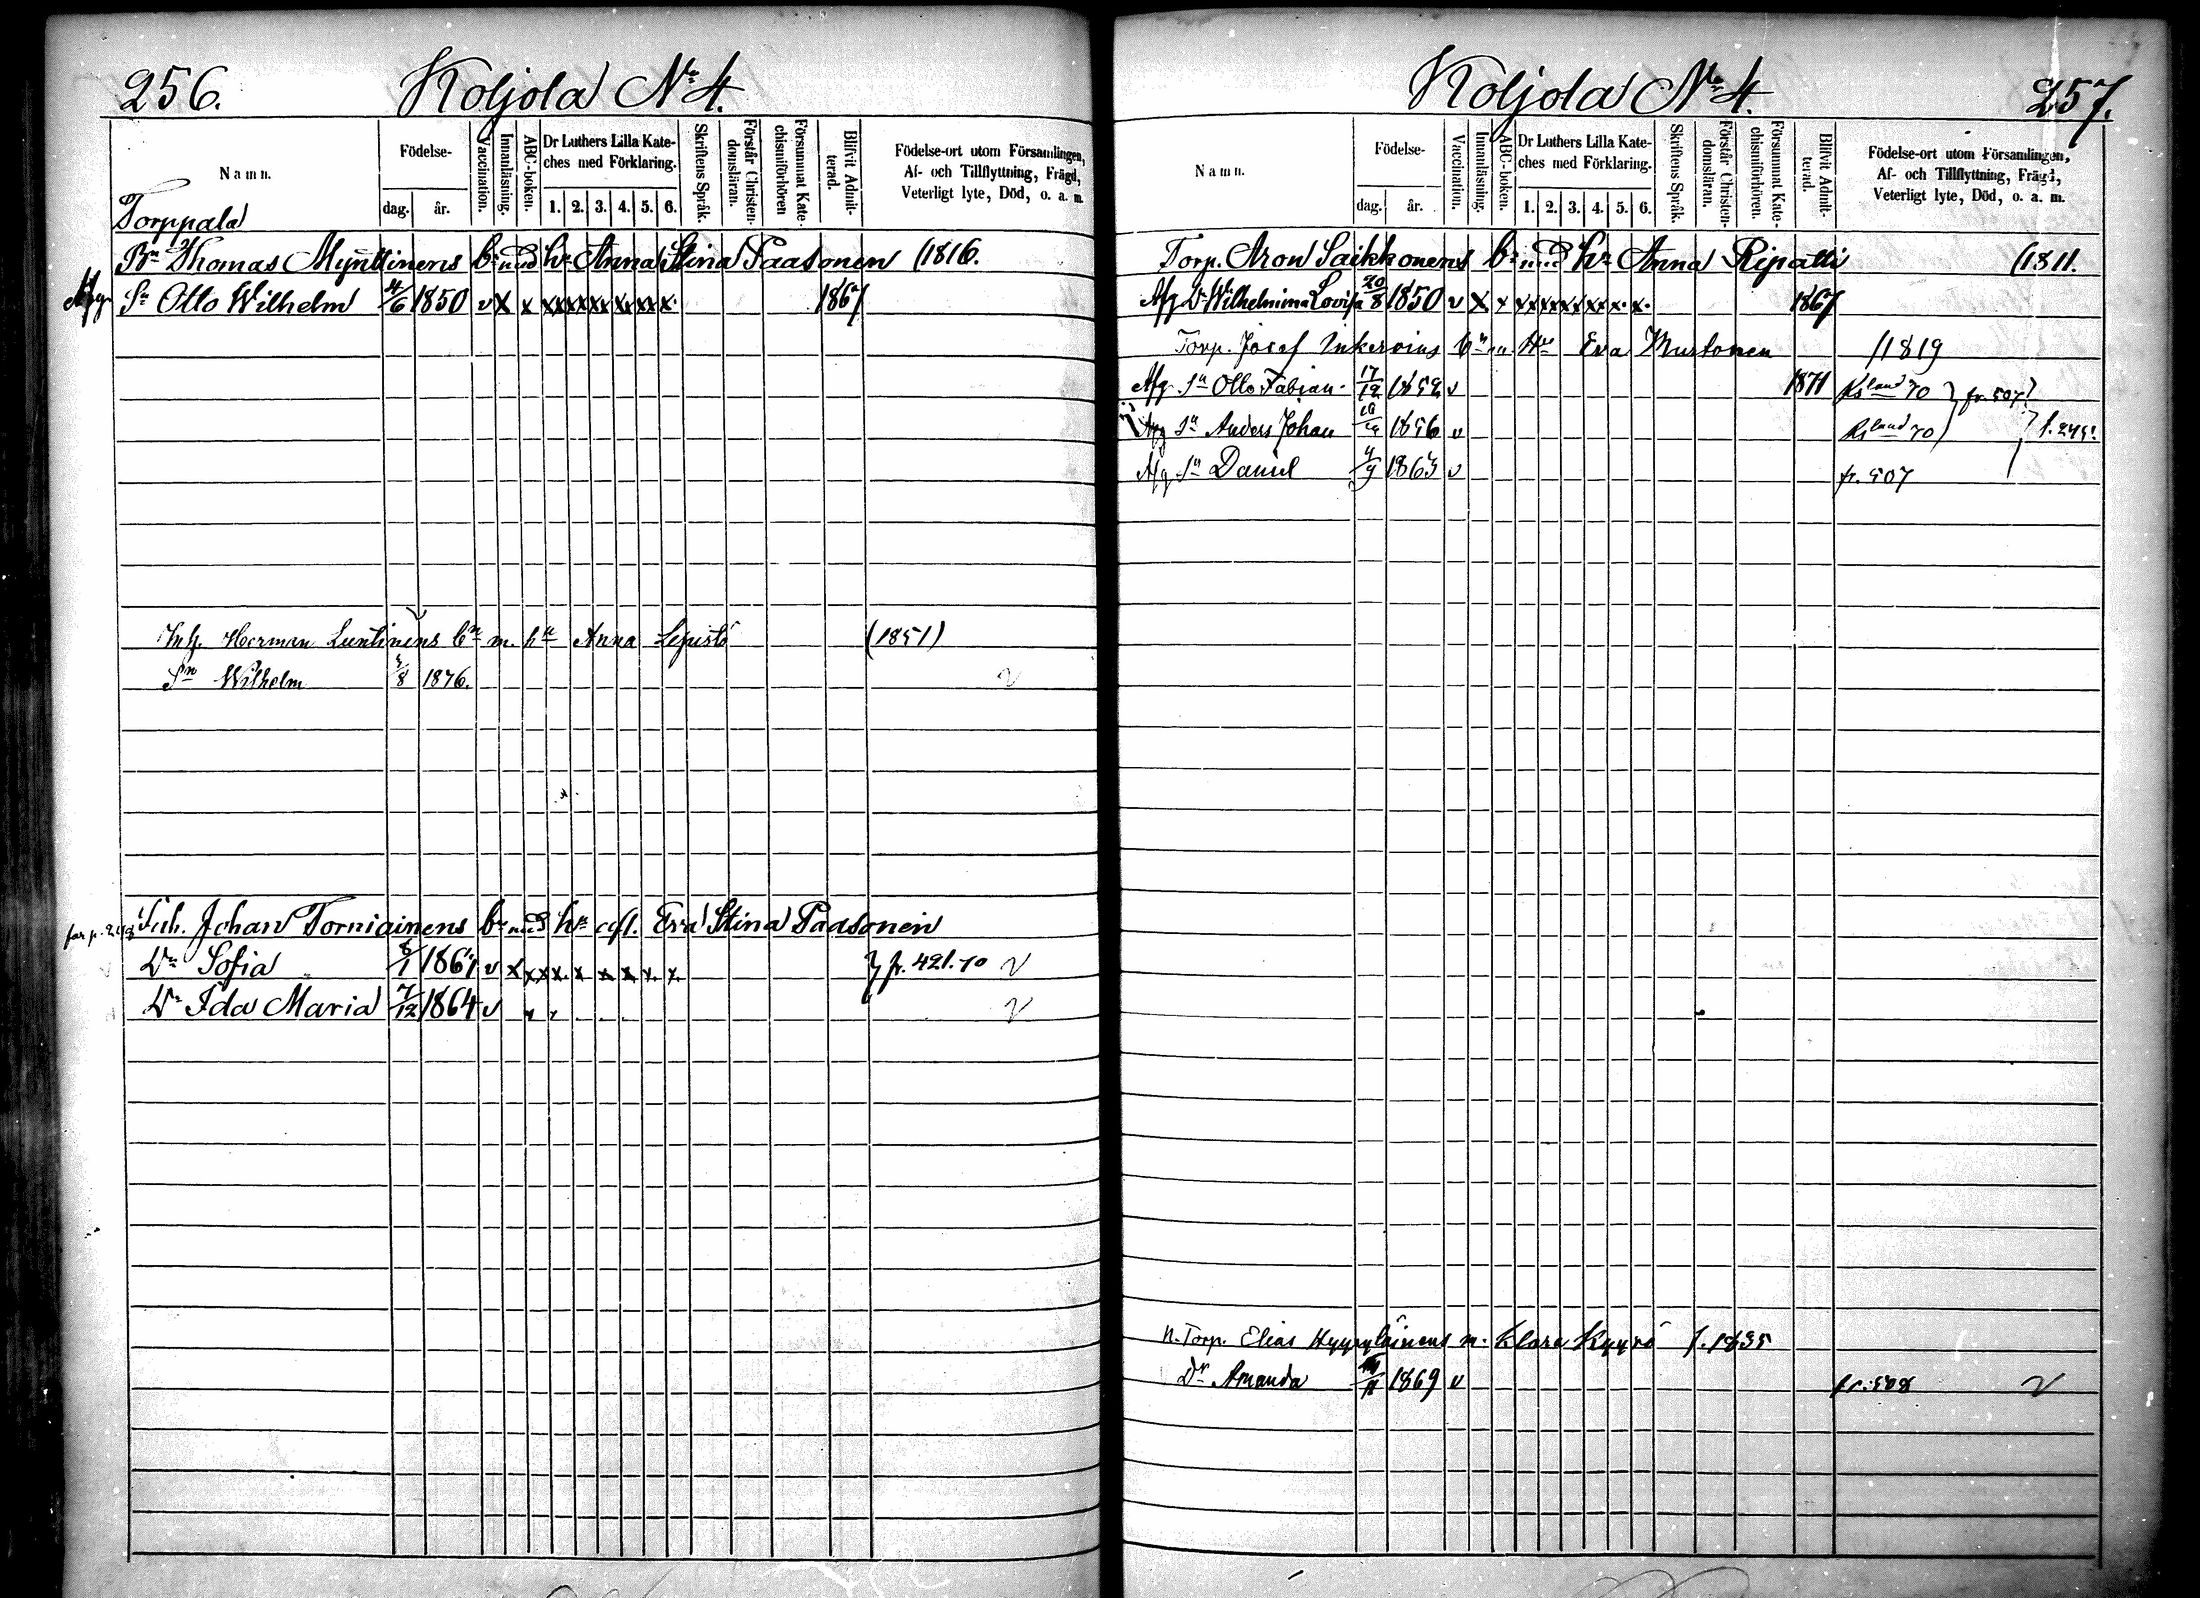 256. Koljola No 4.
Namn.
Födelse-
dag. år.
Vaccination.
Innanläsning.
ABC-boken.
Dr Luthers Lilla Kate-
ches med Förklaring.
1. 2. 3. 4. 5. 6.
Skriftens Språk.
Förstår Christen-
domsläran.
Försummat Kate-
chismiförhören
Blifvit Admit-
terad.
Födelse-ort utom Församlingen,
Af- och Tillflyttning, Frägd,
Veterligt lyte, Död, o. a. m.
Torppala
Bn Thomas Mynttinens bn med hu Anna Stina Paasonen (1816.
Afg. Sn Otto Wilhelm 4/6 1850 v x x xx xx xx xx xx x. 1867
Inh. Herman Luntinens bn m. hu Anna Lepistö (1851)
Sn Wilhelm 3/8 1876. v
far p. 248 Inh. Johan Torniainens bn med hu afl. Eva Stina Paasonen
Dr Sofia 8/1 1861 v x x x x x x x x x. } fr. 421. 70 v
Dr Ida Maria 7/12 1864 v v
Koljola No 4. 257.
Namn.
Födelse-
dag. år.
Vaccination.
Innanläsning.
ABC-boken.
Dr Luthers Lilla Kate-
ches med Förklaring.
1. 2. 3. 4. 5. 6.
Skriftens Språk.
Förstår Christen-
domsläran.
Försummat Kate-
chismiförhören.
Blifvit Admit-
terad.
Födelse-ort utom Församlingen,
Af- och Tillflyttning, Frägd,
Veterligt lyte, Död, o. a. m.
Torp. Aron Saikkonens bn med hu Anna Ripatti (1811.
Afg Dr Wilhelmina Lovisa 20/8 1850 v x x xx xx xx xx x. x. 1867
Torp. Josef Inkeroins bn m. Hu Eva Murtonen f1819
Afg Sn Otto Fabian 17/12 1852 v 1871 Rsland 70 } fr. 507
Afg Sn Anders Johan 1856 v Rsland 70 } f. 245.
Afg Sn Daniel 4/9 1863 v fr. 507
n. Torp. Elias Hyyryläinens m. Klara Kyyrö f. 1835
Dr Amanda 1869 v fr. 508 v